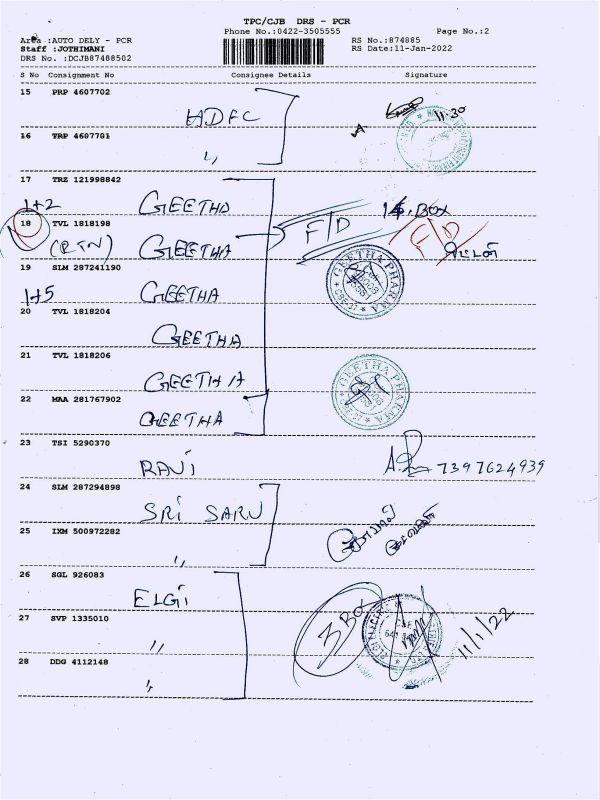 TPC/CJB DRS - PCR
Phone No.:0422-3505555 Page No.:2
Area :AUTO DELY - PCR RS No.:874885
Staff :JOTHIMANI RS Date:11-Jan-2022
DRS No. :DCJB87488502
S No Consignment No Consignee Details Signature
15 PRP 4607702
HDFC 11.30
16 TRP 4607701
"
17 TRZ 121998842
1+2 GEETHA BOX
18 TVL 1818198 F/D F/D
(RTN) GEETHA
19 SLM 287241190 GEETHA PHARMA
1+5 GEETHA
20 TVL 1818204
GEETHA
21 TVL 1818206
GEETHA GEETHA PHARMA
22 MAA 281767902
GEETHA
23 TSI 5290370
RAVI 7397624939
24 SLM 287294898
SRI SARU
25 IXM 500972282
"
26 SGL 926083
ELGI 3 Box
27 SVP 1335010
" 11/1/22
28 DDG 4112148
"